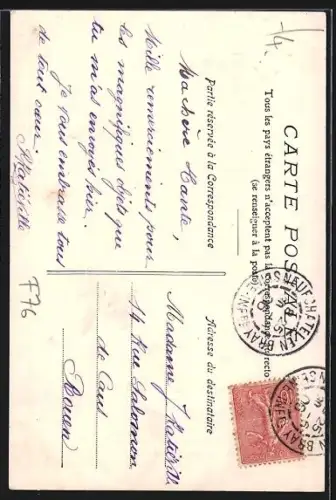 CARTE POSTALE
Tous les pays étrangers n'acceptent pas la Correspondance au recto
(se renseigner à la poste)
Partie réservée à la Correspondance
Adresse du destinataire
Ma chère tante,
Mille remerciements pour
les magnifiques objets que
tu m'as envoyés hier.
Je vous embrasse tous
de tout cœur.
Madame J.
14 Rue Salomon
de Caus
Rouen
NEUFCHATEL-EN-BRAY
F76